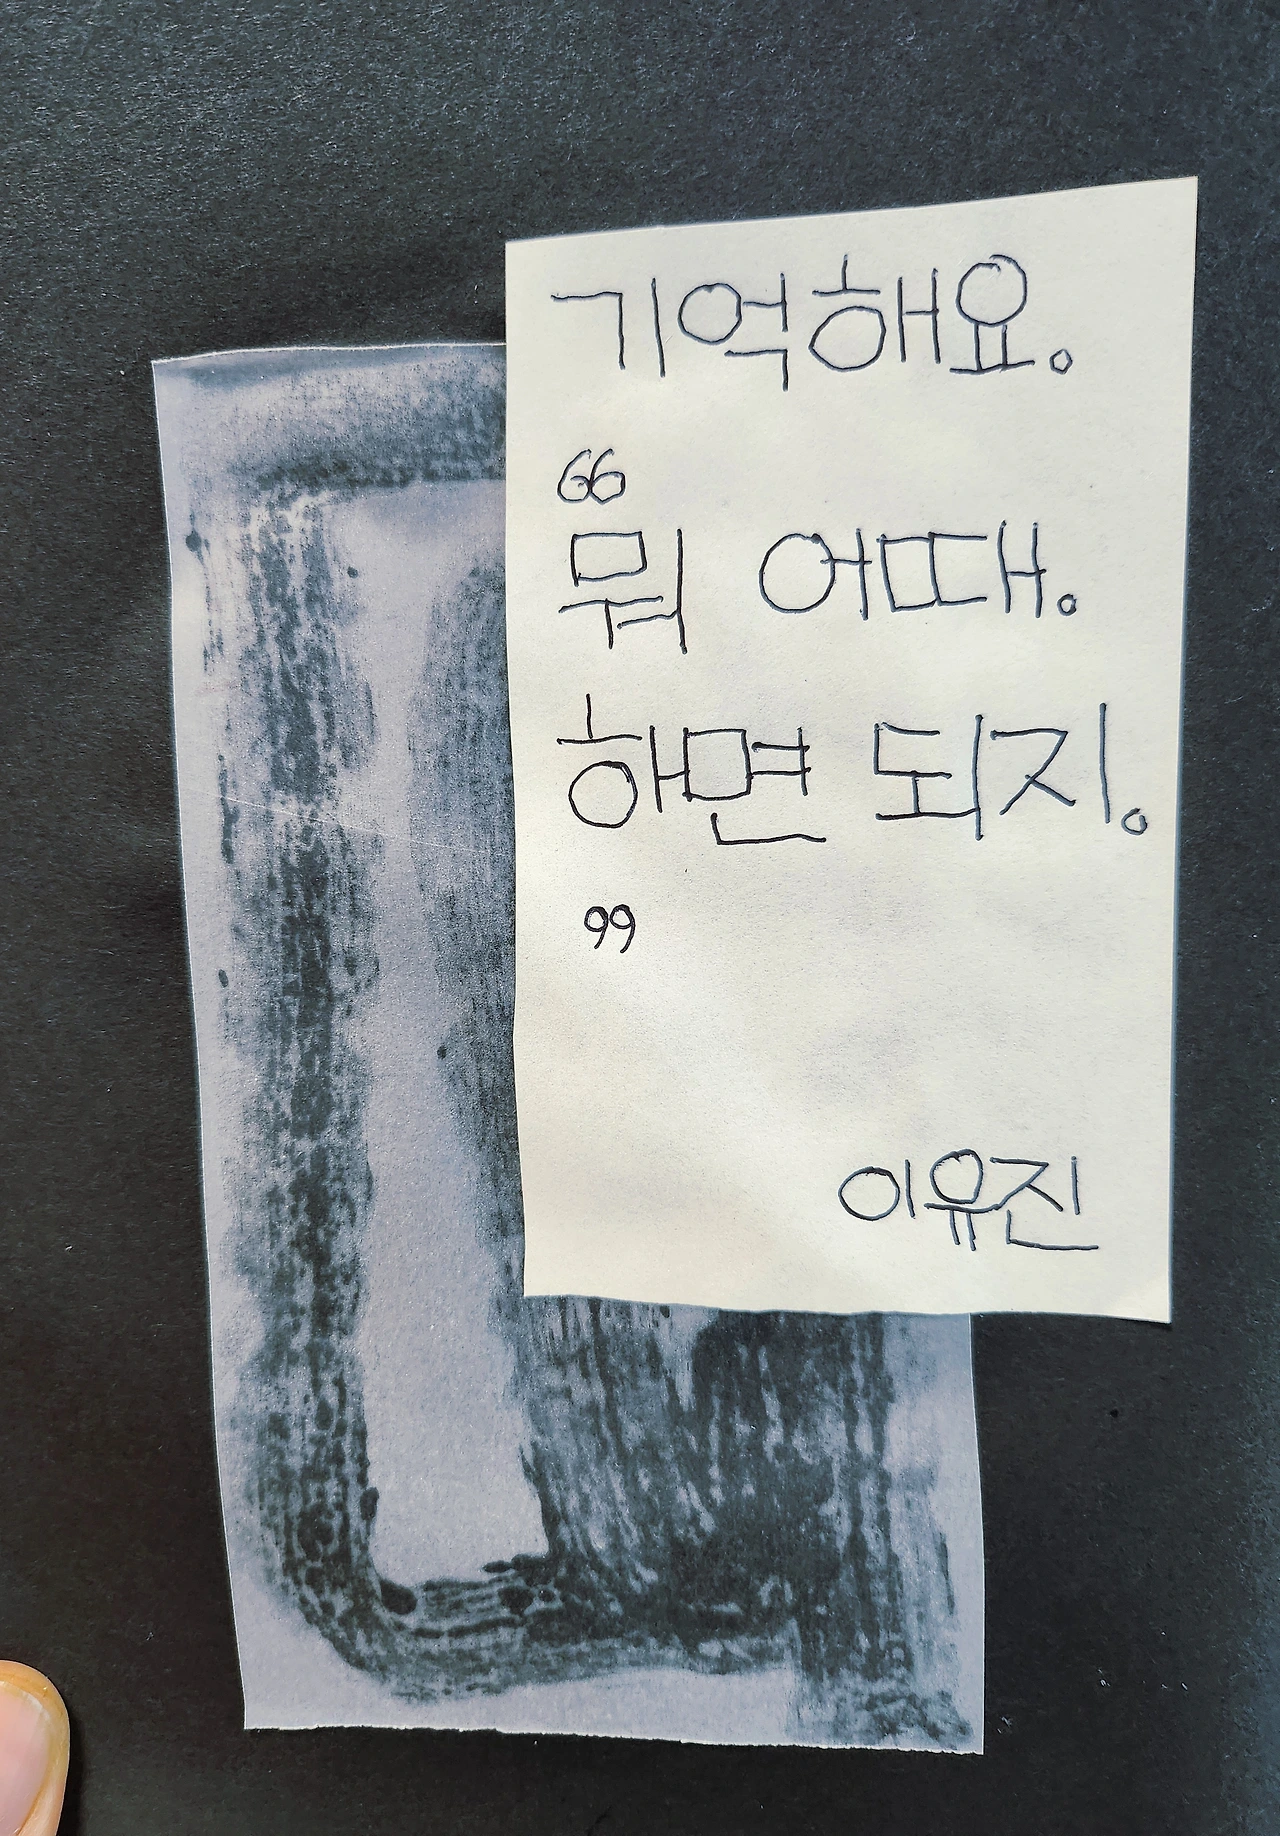 기억해요.
“
뭐 어때.
하면 되지.
”
이유진